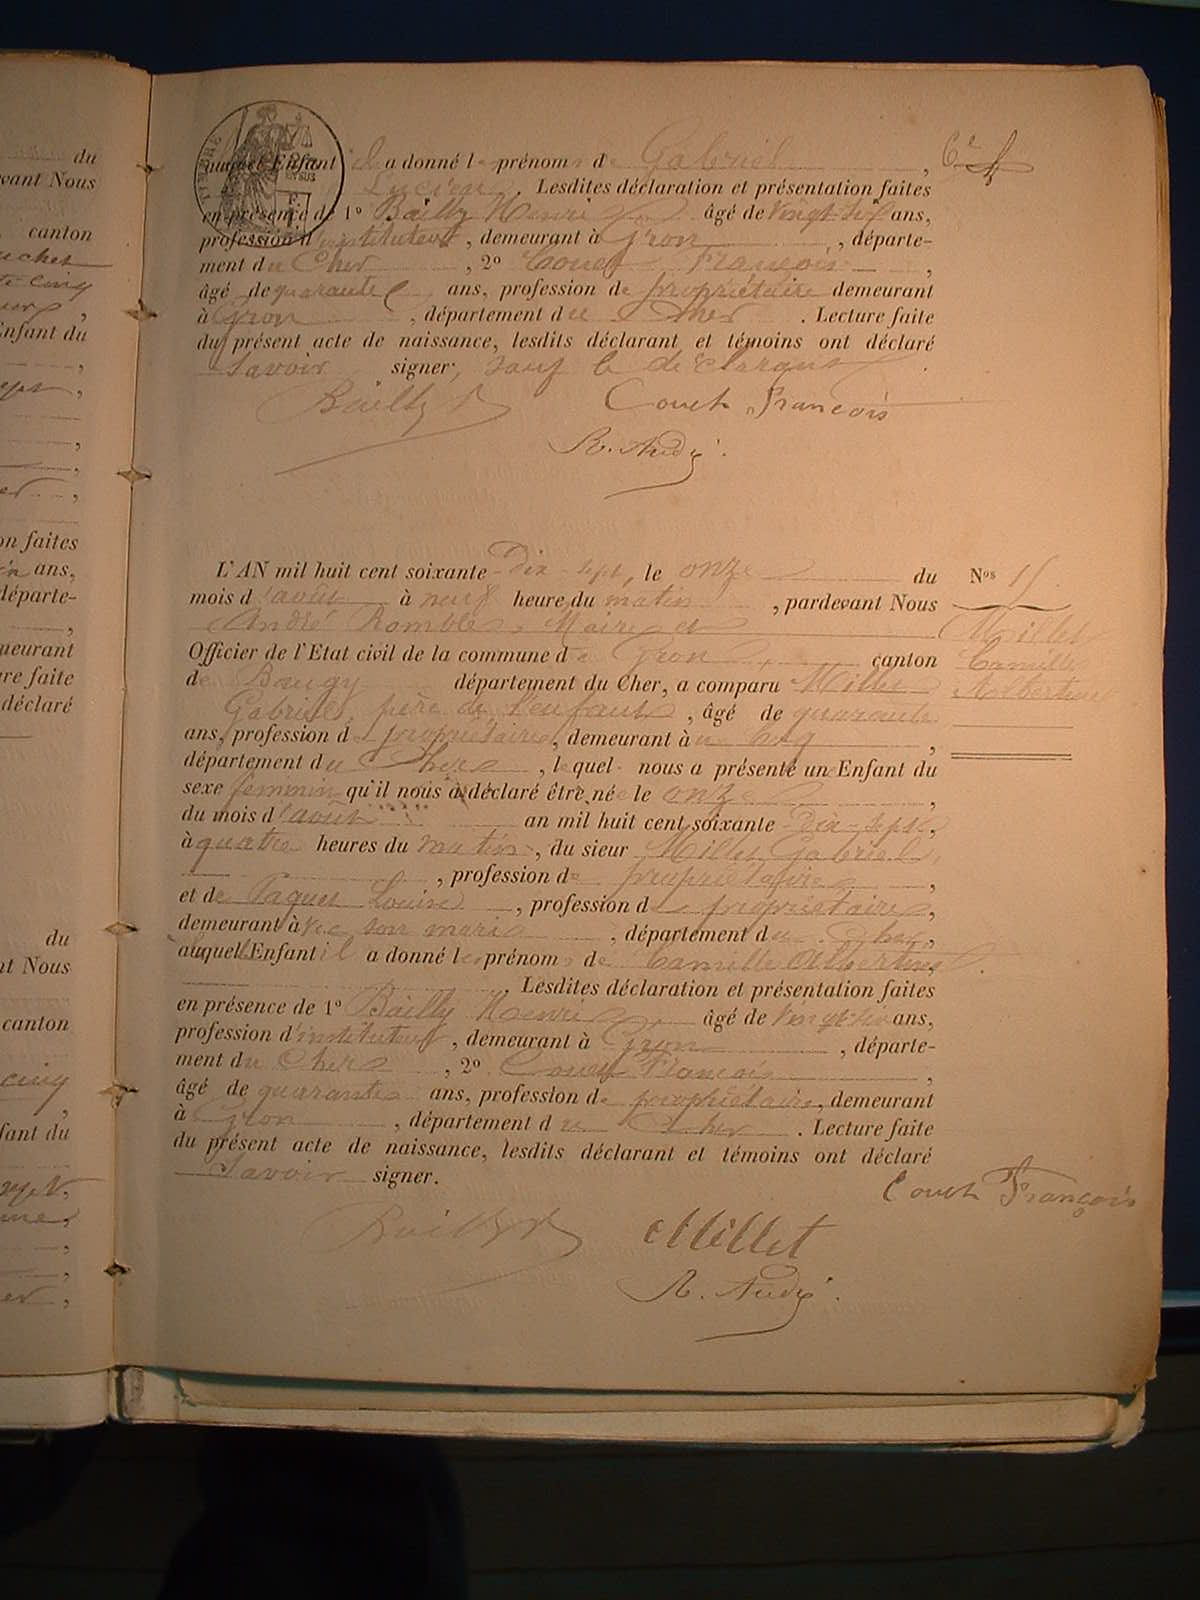 du
vant Nous
canton
uchet
te cinq
Enfant du
sept,
er,
on faites
ans,
départe-
,
meurant
re faite
déclaré
du
nt Nous
canton
cinq
,
fant du
sept,
er,
TIMBRE
6e
auquel Enfant il a donné les prénoms de Gabriel,
Lucien. Lesdites déclaration et présentation faites
en présence de 1º Bailly Henri âgé de vingt-six ans,
profession d'instituteur, demeurant à Gron, départe-
ment du Cher, 2º Couet François,
âgé de quarante ans, profession de propriétaire demeurant
à Gron, département du Cher. Lecture faite
du présent acte de naissance, lesdits déclarant et témoins ont déclaré
Savoir signer, sauf le déclarant.
Bailly h Coueth François
R. André.
L'AN mil huit cent soixante-Dix-sept, le onze du Nos 15
mois d'août à neuf heure du matin, pardevant Nous
André Romble, Maire et Millet
Officier de l'Etat civil de la commune de Gron, canton Camille
de Baugy département du Cher, a comparu Millet Albertine
Gabriel, père de l'enfant, âgé de quarante
ans, profession de propriétaire, demeurant à u Coq,
département du Cher, lequel nous a présenté un Enfant du
sexe féminin qu'il nous a déclaré être née le onze,
du mois d'août an mil huit cent soixante-Dix-sept,
à quatre heures du matin, du sieur Millet Gabriel,
, profession de propriétaire,
et de Paquet Louise, profession de propriétaire,
demeurant avec son mari, département du Cher,
auquel Enfant il a donné les prénoms de Camille Albertine.
. Lesdites déclaration et présentation faites
en présence de 1º Bailly Henri âgé de vingt-six ans,
profession d'instituteur, demeurant à Gron, départe-
ment du Cher, 2º Couet François,
âgé de quarante ans, profession de propriétaire, demeurant
à Gron, département du Cher. Lecture faite
du présent acte de naissance, lesdits déclarant et témoins ont déclaré
Savoir signer.
Coueth François
Bailly h Millet
R. André.